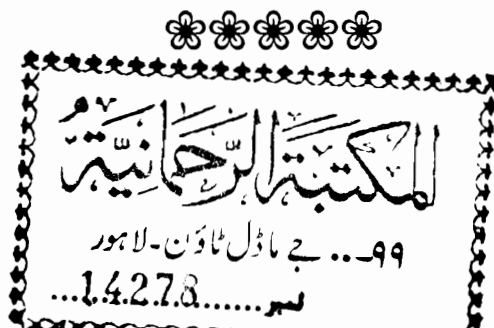 المكتبة الرحمانية
۹۹... جے ماڈل ٹاؤن - لاہور
نمبر......14278...